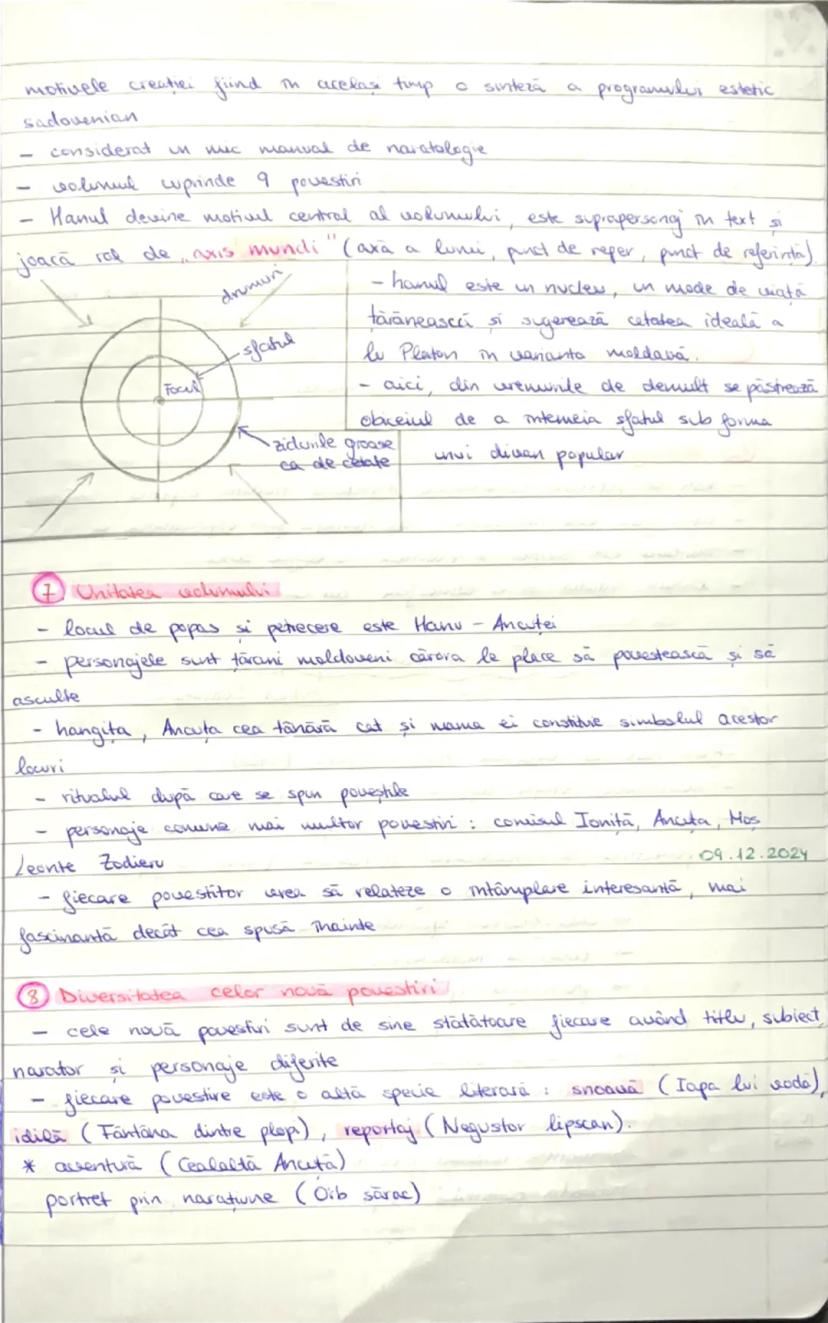 motivele creației fiind în același timp o sinteză a programului estetic
sadovenian
- considerat un mic manual de naratologie
- volumul cuprinde 9 povestiri
- Hanul devine motivul central al volumului, este suprapersonaj în text și
joacă rol de „axis mundi" (axă a lumii, punct de reper, punct de referință)
drumuri
sfatul
Focul
zidurile groase
ca de cetate
- hanul este un nucleu, un mode de viață
țărănească și sugerează cetatea ideală a
lu Platon în varianta moldavă.
- aici, din vremurile de demult se păstrează
obiceiul de a întemeia sfatul sub forma
unui divan popular
7 Unitatea volumului
- locul de popas și petrecere este Hanu - Ancuței
- personajele sunt țărani moldoveni cărora le place să povestească și să
asculte
- hangița, Ancuța cea tânără cat și mama ei constituie simbolul acestor
locuri
- ritualul după care se spun poveștile
- personaje comune mai multor povestiri : comisul Ioniță, Ancuța, Moș
Leonte Zodieru
09.12.2024
- fiecare povestitor vrea să relateze o întâmplare interesantă, mai
fascinantă decât cea spusă înainte
8 Diversitatea celor nouă povestiri
- cele nouă povestiri sunt de sine stătătoare fiecare având titlu, subiect,
narator și personaje diferite
- fiecare povestire este o altă specie literară : snoavă (Iapa lui vodă),
idilă (Fântâna dintre plopi), reportaj (Negustor lipscan).
* aventură (Cealaltă Ancuță)
portret prin narațiune (Orb sărac)